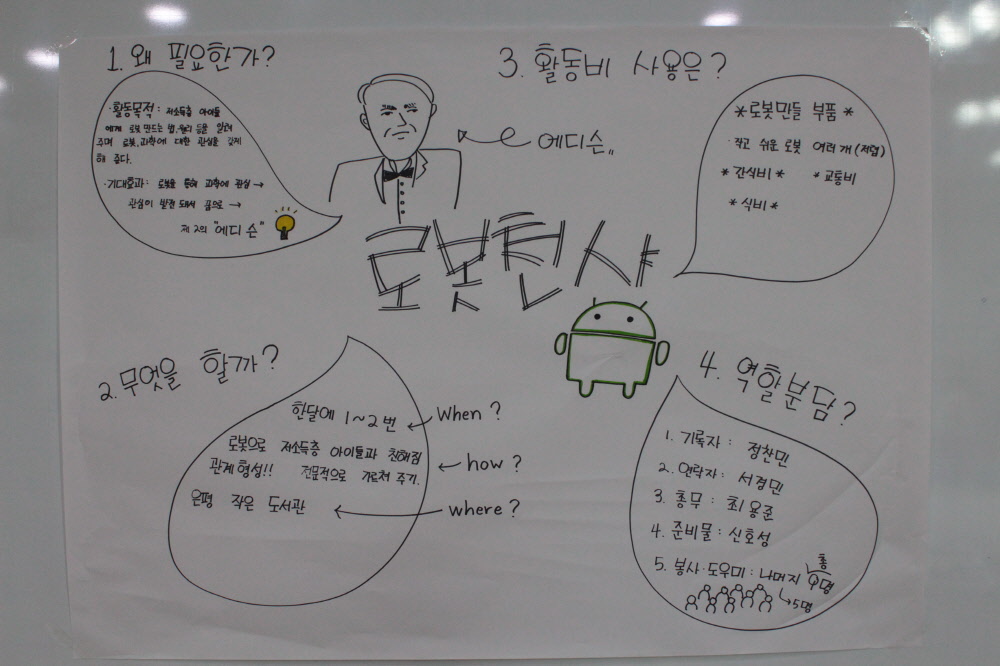 1. 왜 필요한가?
·활동목적: 저소득층 아이들
에게 로봇 만드는 법, 원리 등을 알려
주며 로봇, 과학에 대한 관심을 갖게
해 준다.
·기대효과: 로봇을 통해 과학에 관심 →
관심이 발전 돼서 꿈으로 →
제 2의 "에디슨"
에디슨
3. 활동비 사용은?
*로봇만들 부품*
·작고 쉬운 로봇 여러 개 (저렴)
*간식비* *교통비
*식비*
로봇천사
2. 무엇을 할까?
한달에 1~2번 ← When?
로봇으로 저소득층 아이들과 친해짐
관계형성!! 전문적으로 가르쳐 주기. ← how?
은평 작은 도서관 ← where?
4. 역할분담?
1. 기록자: 정찬민
2. 연락자: 서경민
3. 총무: 최용준
4. 준비물: 신호성
5. 봉사·도우미: 나머지 총 명
↳ 5명